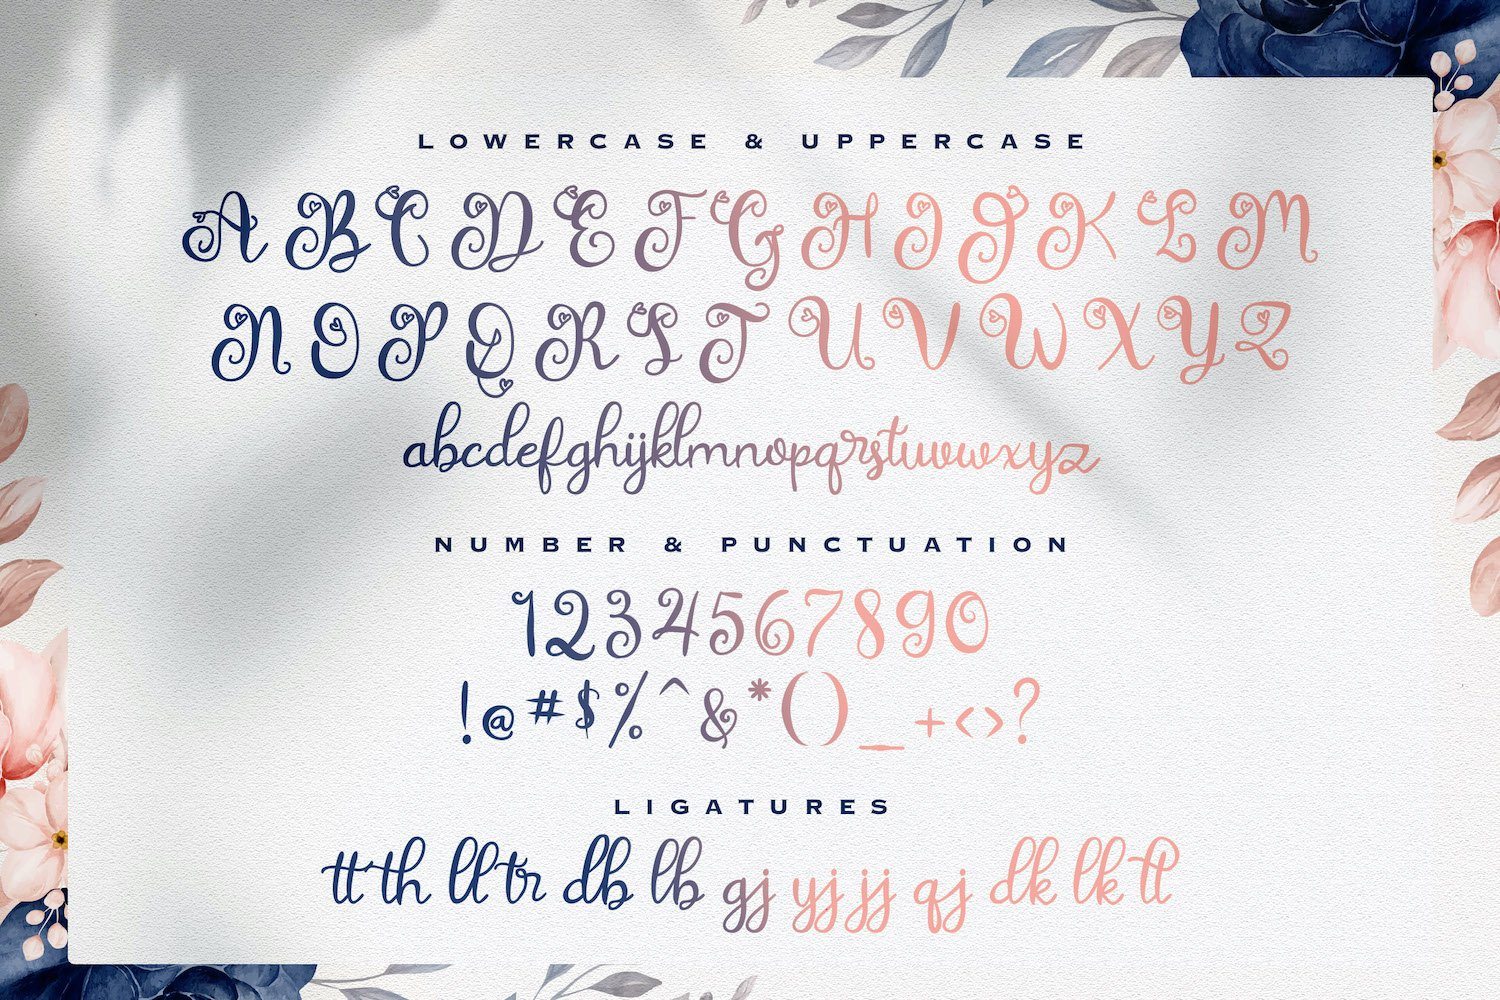 LOWERCASE & UPPERCASE
A B C D E F G H I J K L M
N O P Q R S T U V W X Y Z
abcdefghijklmnopqrstuvwxyz
NUMBER & PUNCTUATION
1234567890
!@#$%^&*()_+<>?
LIGATURES
tt th ll tr db lb gj yj jj qj dk lk tl